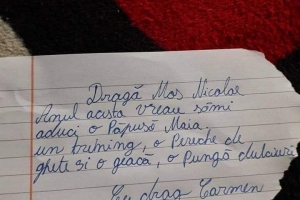 Dragă Moș Nicolae
Anul acesta vreau sămi
aduci o Păpușă Maia,
un trening, o Pereche de
ghete si o geacă, o Pungă dulciuri
Cu drag Carmen